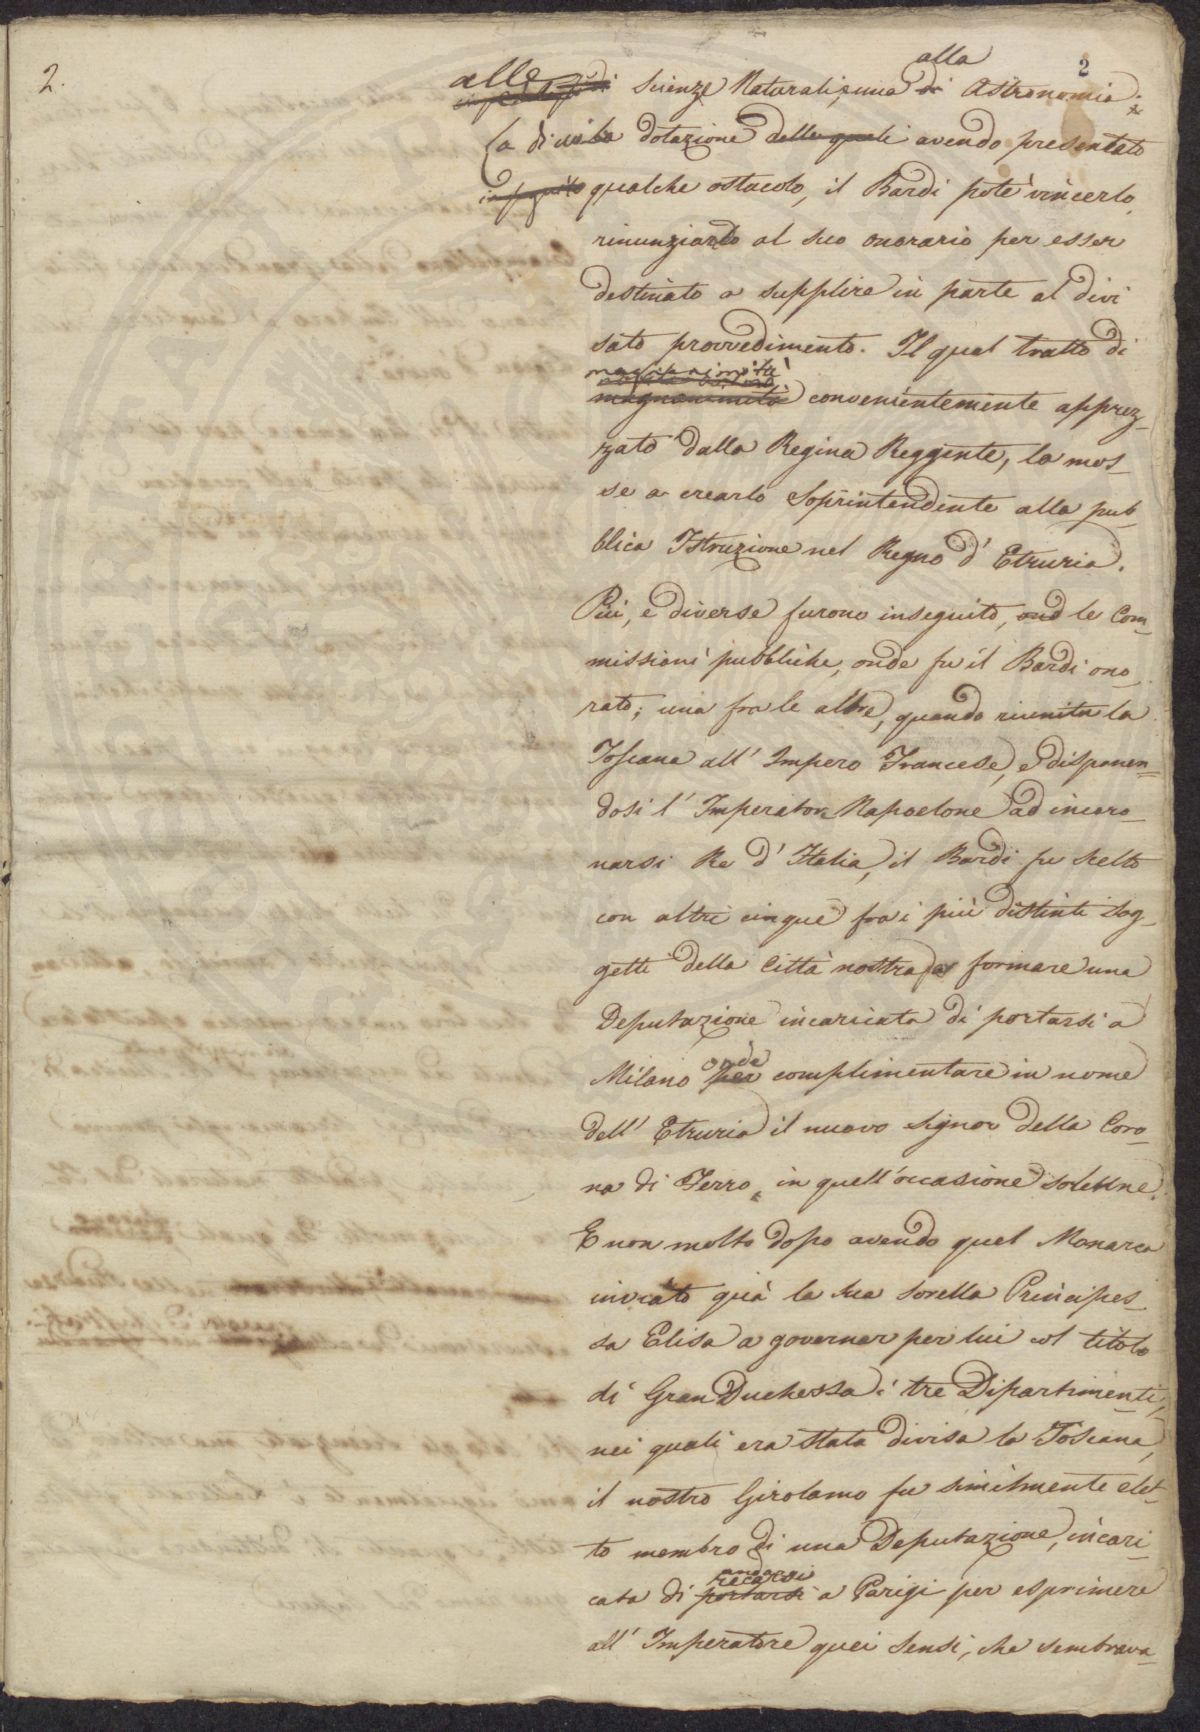 2.
2
alle Scienze Naturali, una di alla Astronomia;
La di cui dotazione delle quali avendo presentato
in seguito qualche ostacolo, il Bardi potè vincerlo,
rinunziando al suo onorario per esser
destinato a supplire in parte al divi
sato provvedimento. Il qual tratto di
magnanimità
magnanimità convenientemente apprez-
zato dalla Regina Reggente, la mos-
se a crearlo Soprintendente alla pub-
blica Istruzione nel Regno d' Etruria.
Più, e diverse furono inseguito, ond le Com-
missioni pubbliche, onde fu il Bardi ono-
rato; una fra le altre, quando riunita la
Toscana all' Impero Francese, e disponen-
dosi l' Imperator Napoelone ad incoro-
narsi Re d' Italia, il Bardi fu scelto
con altri cinque fra i più distinti sog-
getti della Città nostra a formare una
Deputazione incaricata di portarsi a
Milano per onde complimentare in nome
dell' Etruria il nuovo Signor della Coro-
na di Ferro in quell' occasione solenne.
E non molto dopo avendo quel Monarca
inviato quà la sua sorella Principes-
sa Elisa a governar per lui col titolo
di Gran Duchessa i tre Dipartimenti,
nei quali era stata divisa la Toscana,
il nostro Girolamo fu similmente elet-
to membro di una Deputazione, incari-
cata di portarsi recarsi a Parigi per esprimere
all' Imperatore quei sensi, che sembrava-